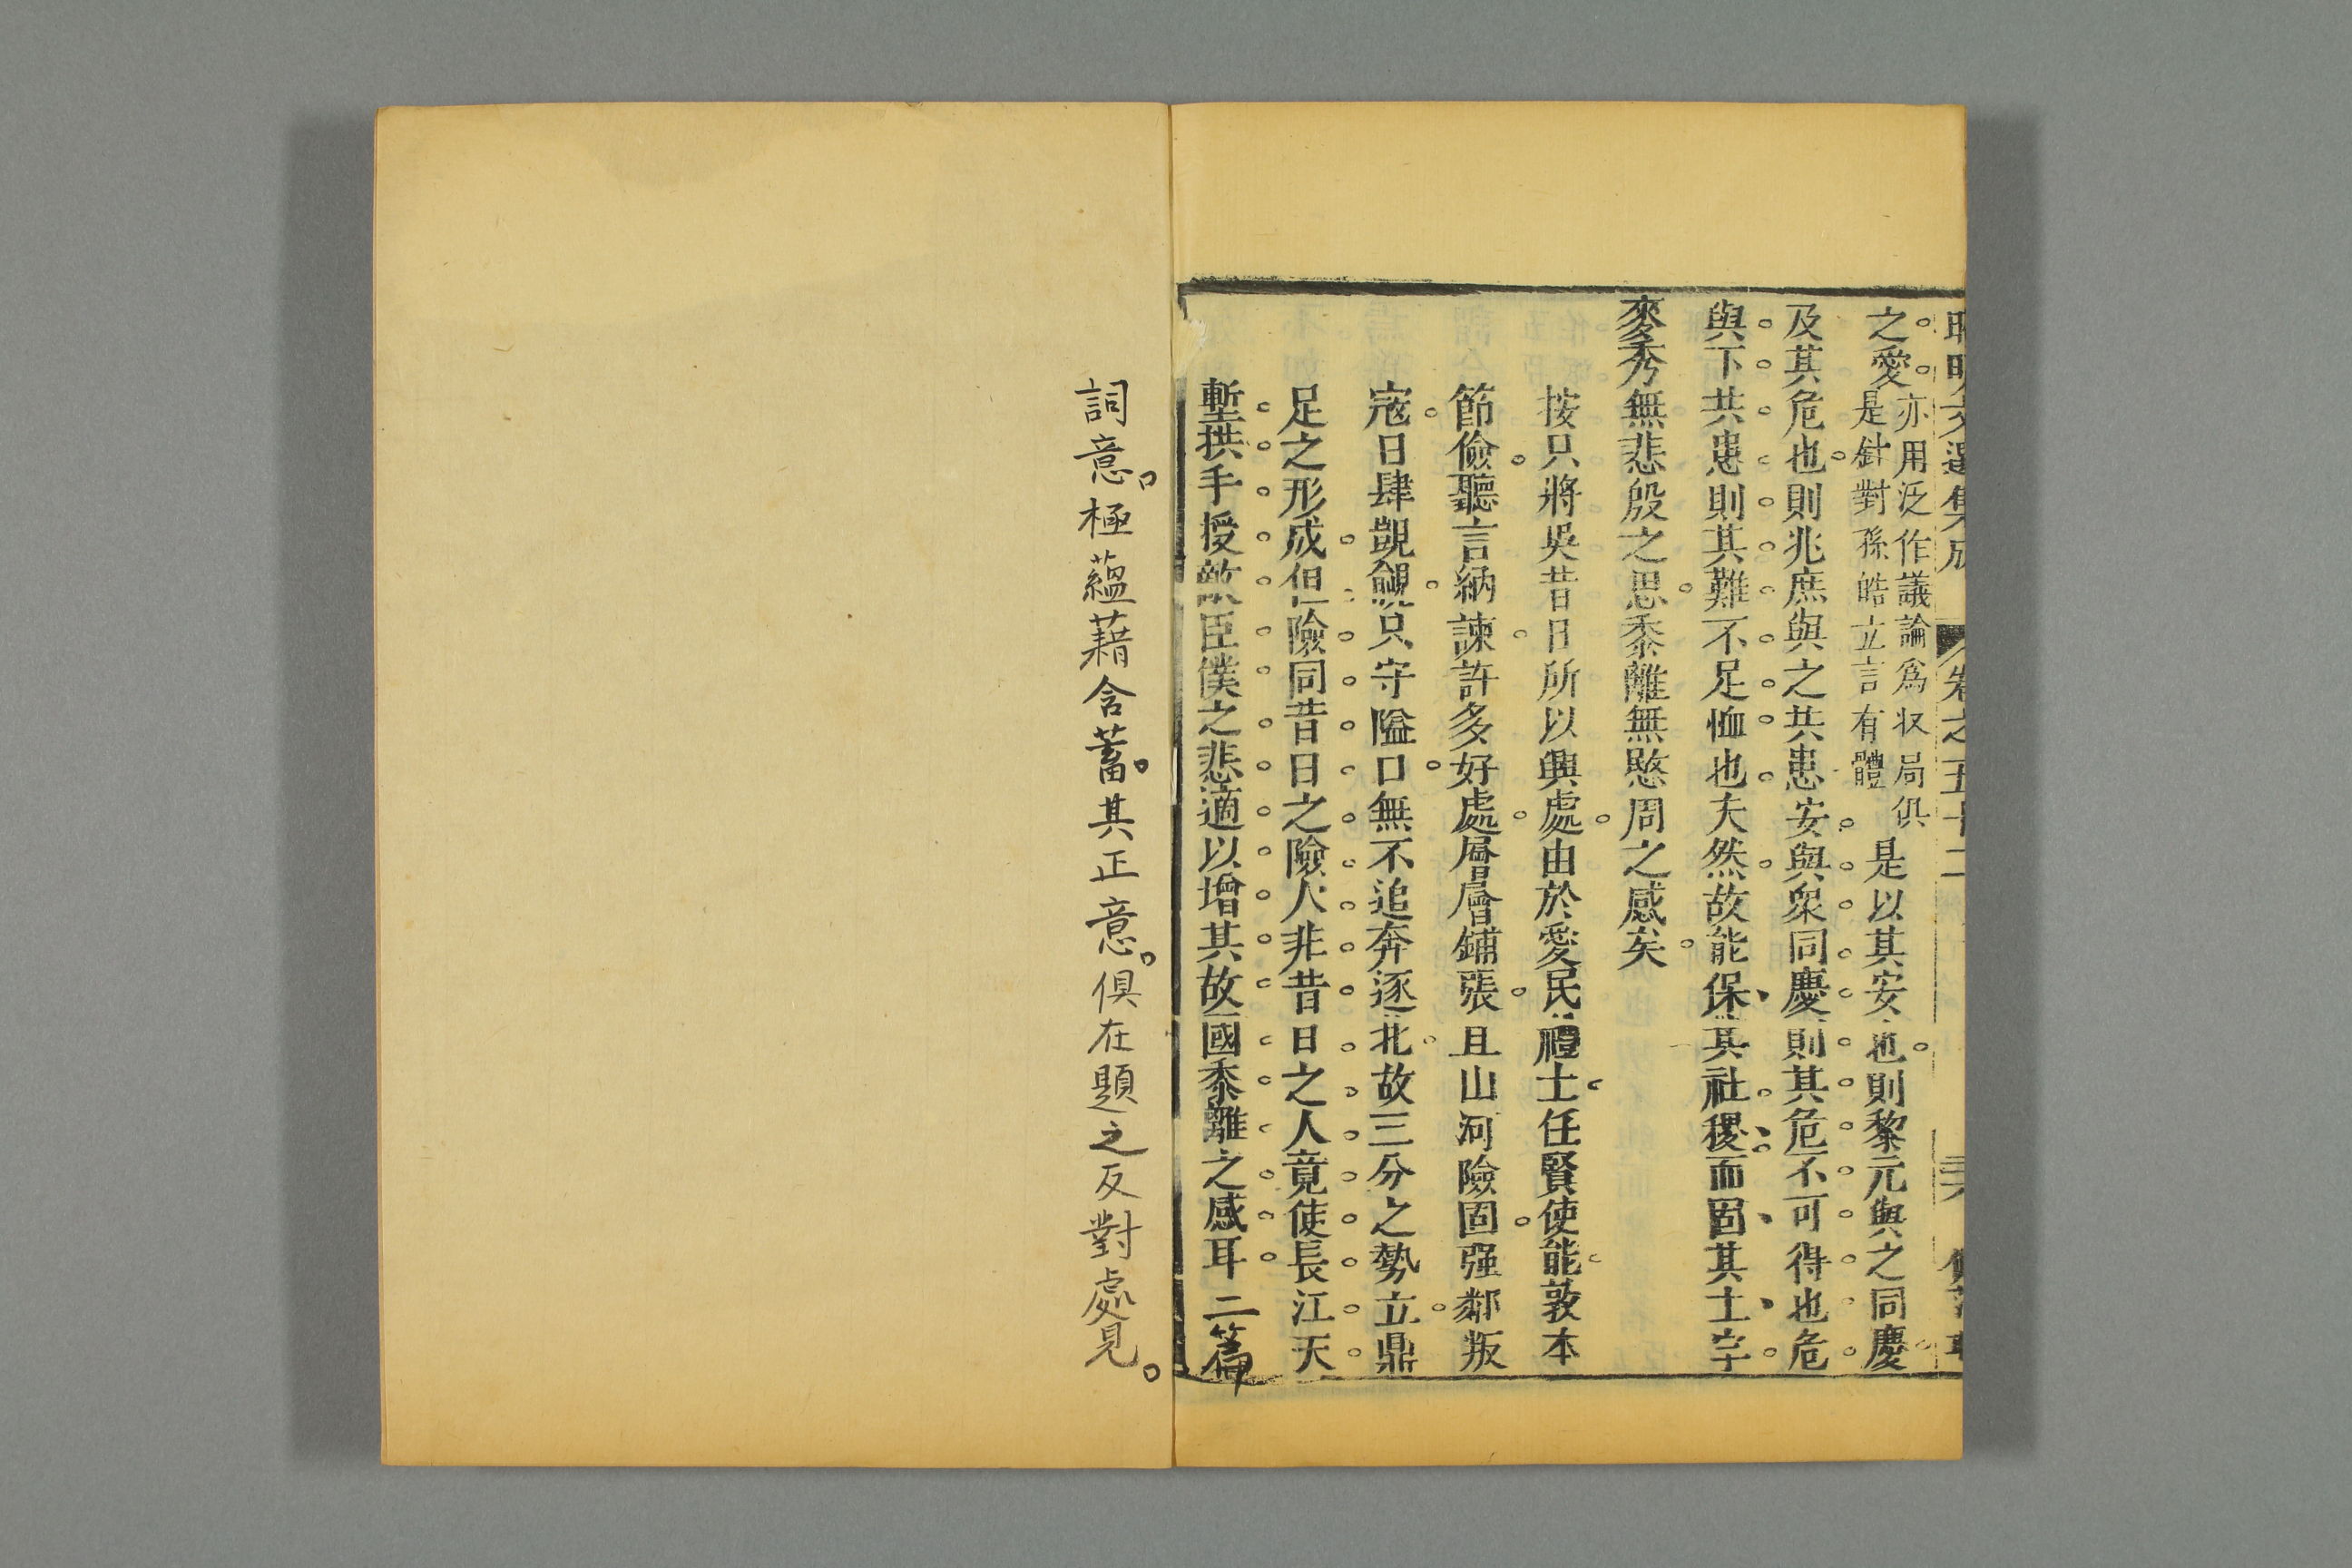 昭明文選集成 卷之五十二
之愛亦用泛作議論爲収局俱是針對孫皓立言有體 是以其安也則黎元與之同慶
及其危也則兆庶與之共患安與衆同慶則其危不可得也危
與下共患則其難不足恤也夫然故能保其社稷而固其土宇
麥秀無悲殷之思黍離無愍周之感矣
按只將吳昔日所以興處由於愛民禮士任賢使能敦本
節儉聽言納諫許多好處層層鋪張且山河險固强鄰叛
寇日肆覬覦只守隘口無不追奔逐北故三分之勢立鼎
足之形成但險同昔日之險人非昔日之人竟使長江天
塹拱手授敵臣僕之悲適以增其故國黍離之感耳二篇
詞意極蘊藉含蓄其正意俱在題之反對處見